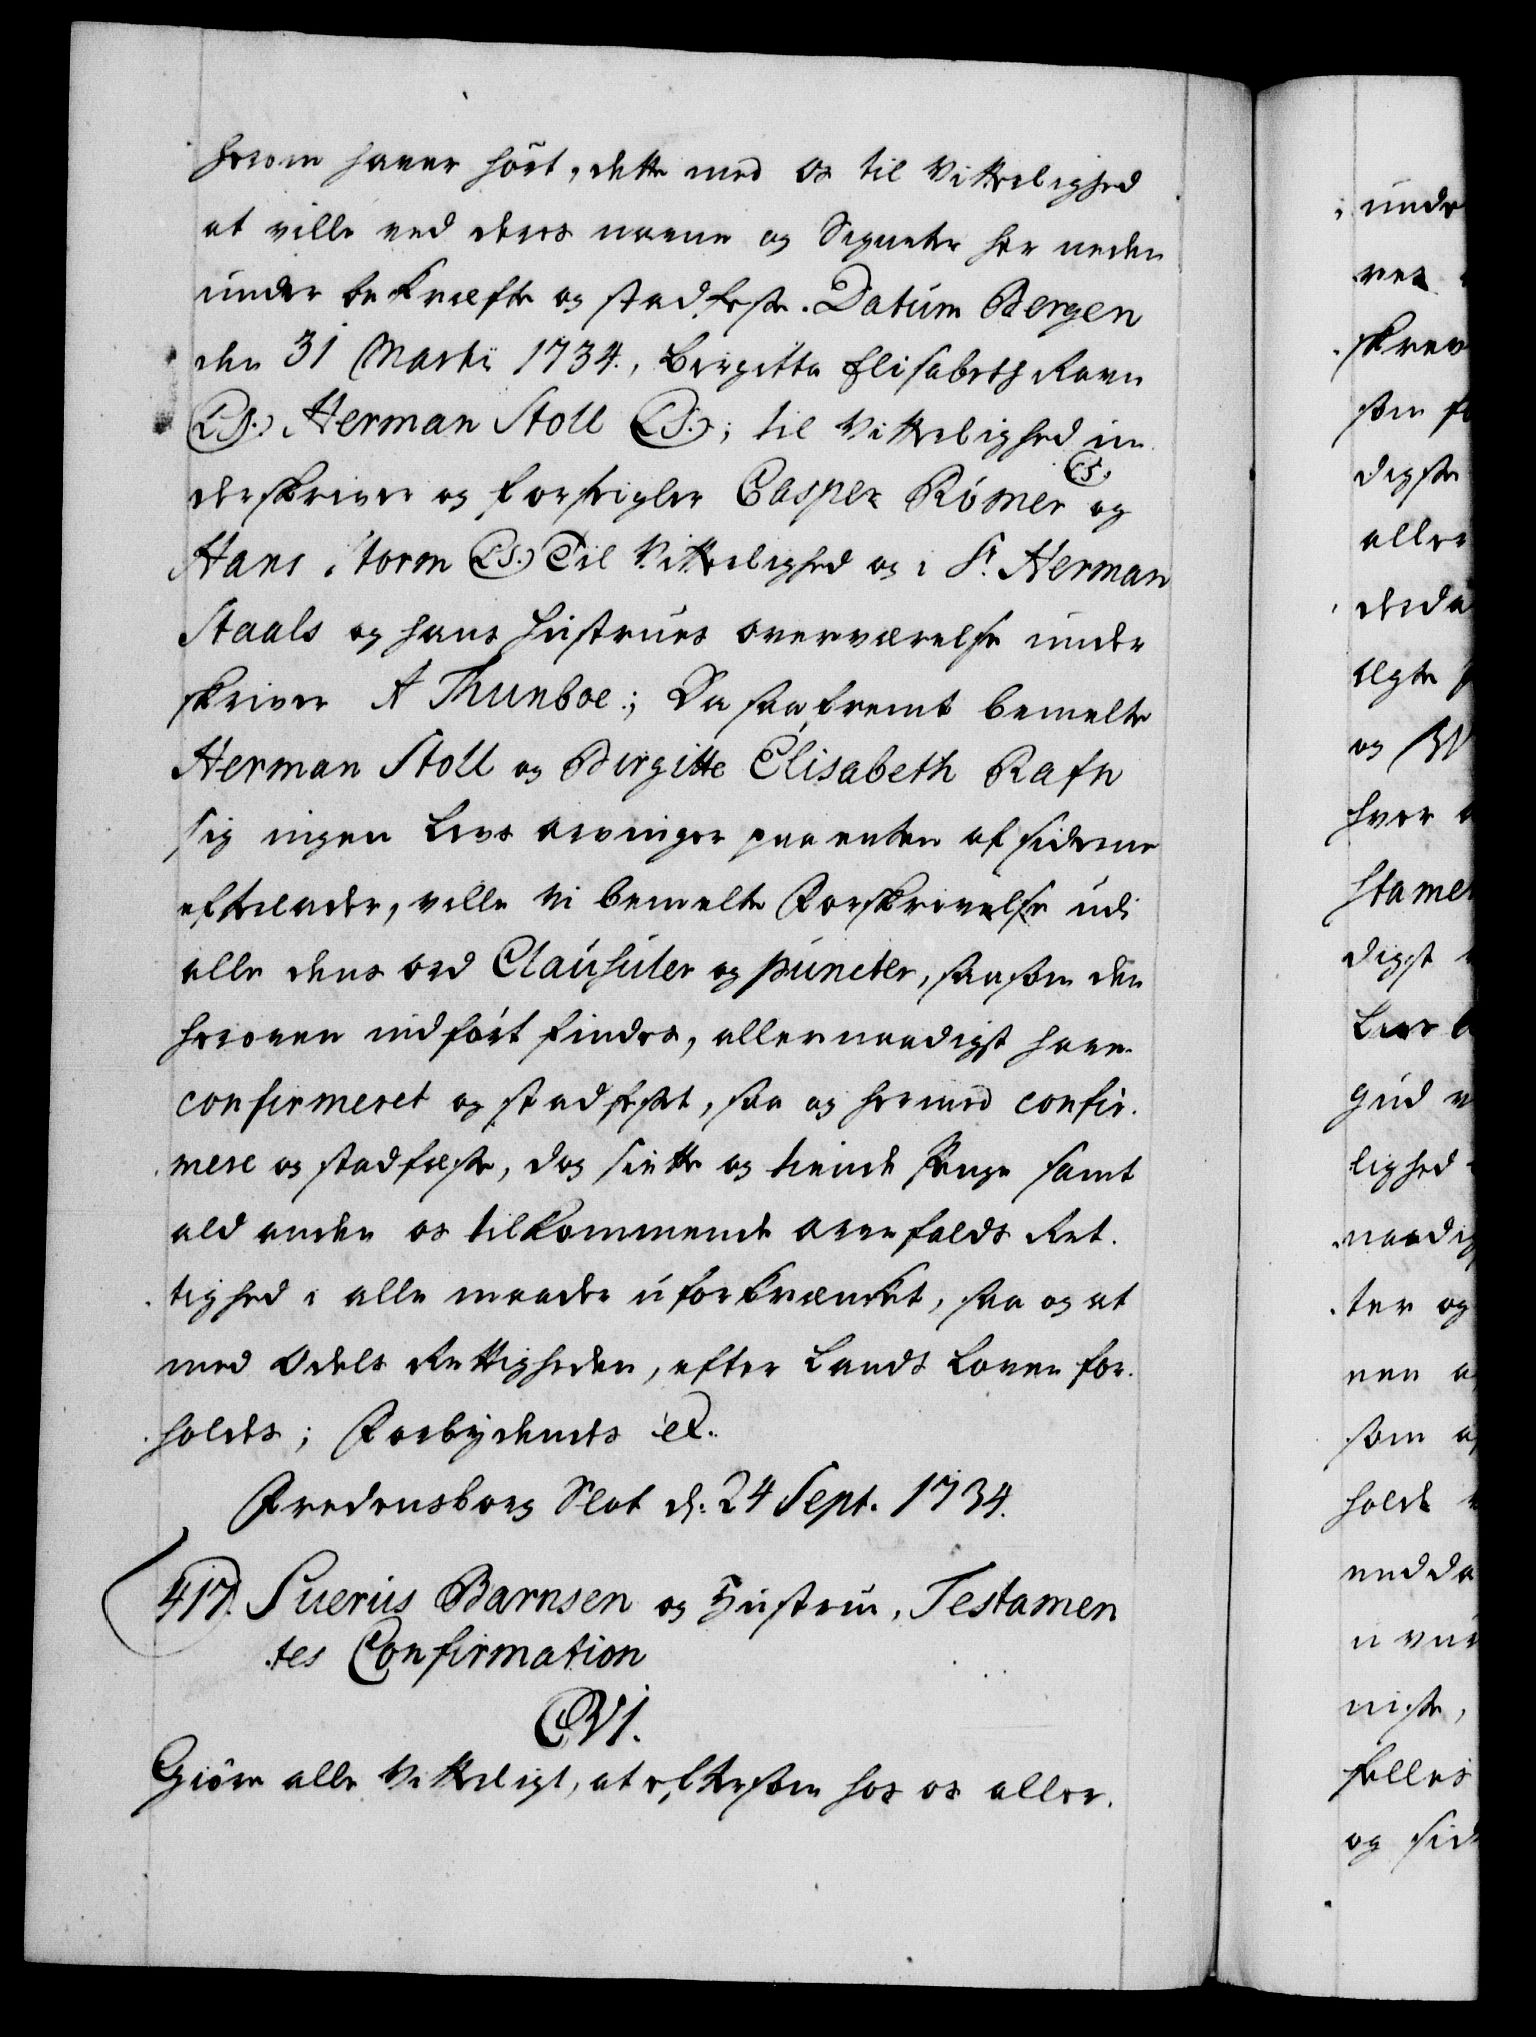 herom haver hört, dette med os til Vitterlighed
at ville ved deres navne og Signeter her neden
under bekræfte og stadfeste. Datum Bergen
den 31 Martii 1734., Birgitta Elisabeth Ravn
(L.S.) Herman Stoll (L.S.); til Vitterlighed un
derskriver og forseigler Casper Römer (L.S.) og
Hans Storm (L.S.) Til Vitterlighed og i Sr. Herman
Staals og hans Hustrues overværelse under
skriver A Thunboe.; Da saafremt bemelte
Herman Stoll og Birgitte Elisabeth Rafn
sig ingen Livs arvinger paa enten af siderne
efterlader, ville Vi bemelte Forskrivelse udi
alle dens ord Clausuler og puncter, saasom den
heroven indfört findes, allernaadigst have
confirmeret og stadfestet, saa og hermed confir.
mere og stadfæste, dog siette og tiende Penge samt
ald anden os tilkommende arvefalds Ret.
tighed i alle maader uforkrænket, saa og at
med Odels Rettigheden, efter Lands Loven for.
holdes; Forbydendes et.
Fredensborg Slot d. 24 Sept. 1734.
417. Suerus Barnsen og Hustrue, Testamen
tes Confirmation
C VI.
Giöre alle Vitterligt, at eftersom hos os aller.
unde
ves
skrev
som
digste
aller
derda
ægte
og
hver
stamen
digst
Livs
Gud
lighed
naadig
ter og
nen
som
holde
endda
u
niste,
felles
og sid